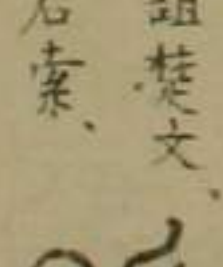 詛楚文、
石索、